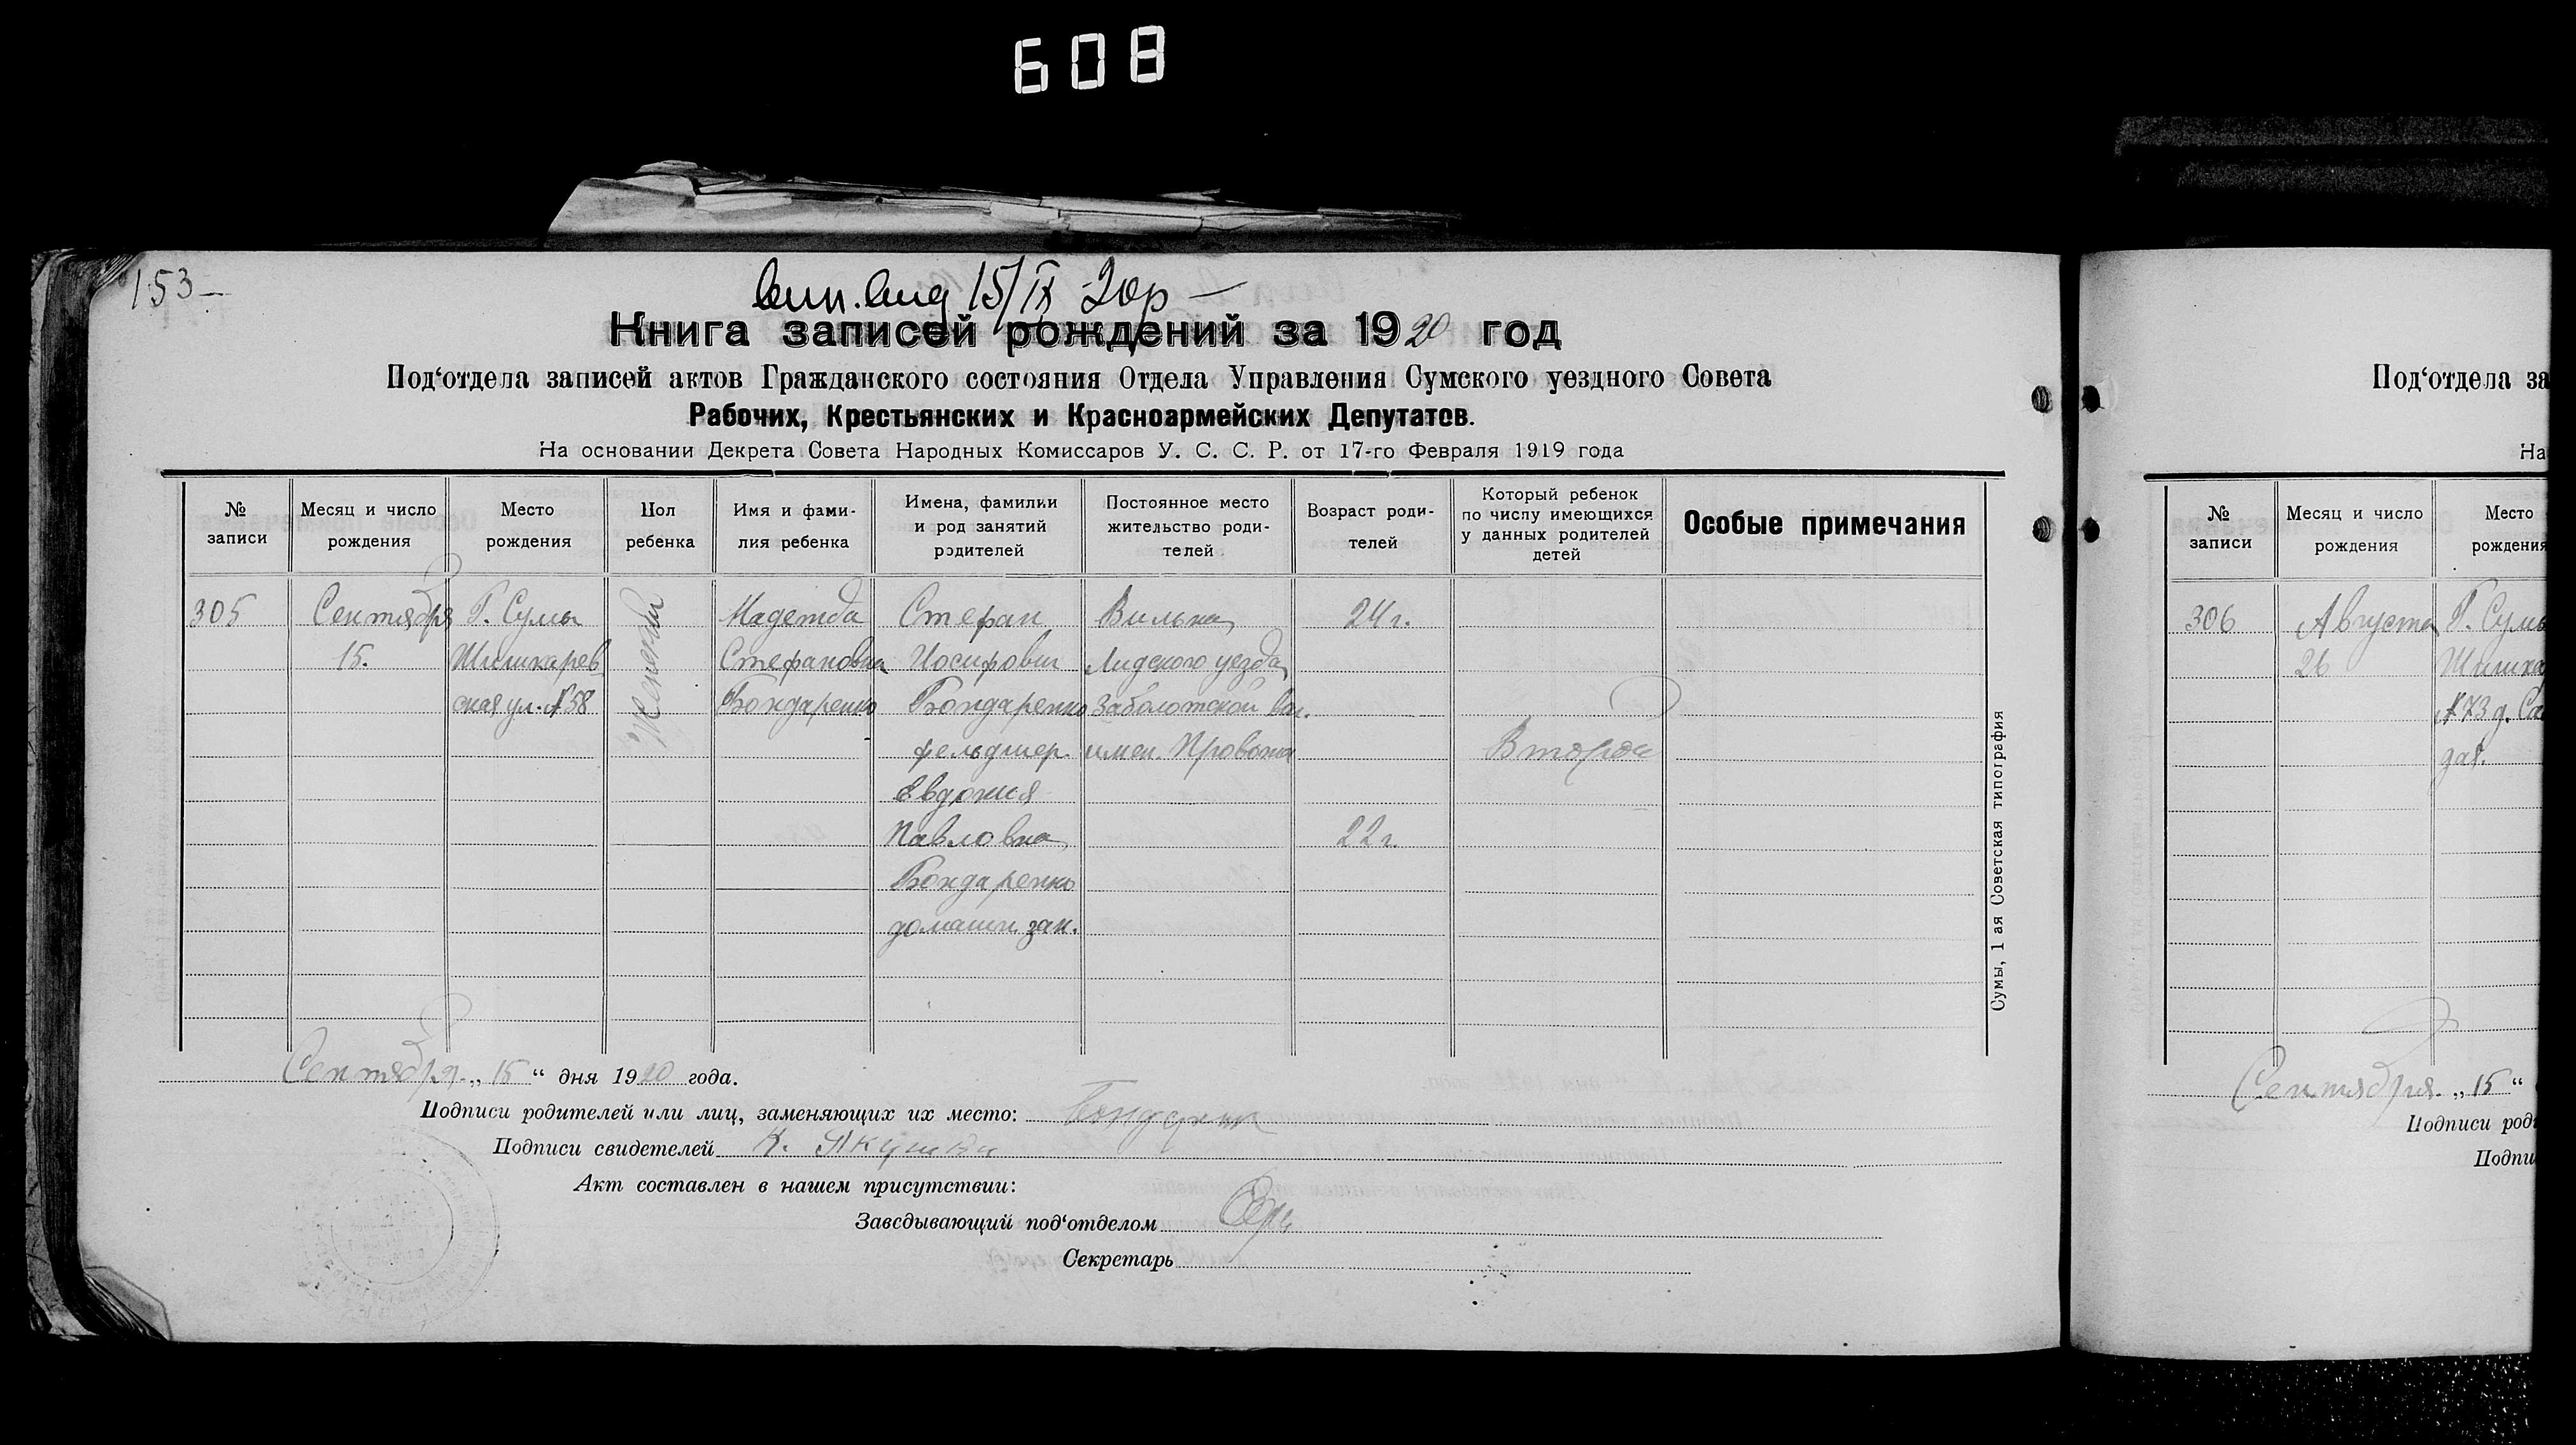 608
153
вып. выд 15/IX 20р
Книга записей рождений за 1920 год
Под‘отдела записей актов Гражданского состояния Отдела Управления Сумского уездного Совета
Рабочих, Крестьянских и Красноармейских Депутатов.
На основании Декрета Совета Народных Комиссаров У. С. С. Р. от 17-го Февраля 1919 года
№ записи
Месяц и число рождения
Место рождения
Пол ребенка
Имя и фами-
лия ребенка
Имена, фамилии
и род занятий
родителей
Постоянное место
жительство роди-
телей
Возраст роди-
телей
Который ребенок
по числу имеющихся
у данных родителей
детей
Особые примечания
305
Сентября
15.
Г. Сумы
Шишкарев
ская ул. №58
Женский
Надежда
Стефановна
Бондаренко
Стефан
Иосифович
Бондаренко
фельдшер
Евдокия
Павловна
Бондаренко
домашн. зан.
Вильна
Лидского уезда
Заболотской вол.
имен. Провожа
24 г.
22 г.
Второй
Сентября „15“ дня 1920 года.
Подписи родителей или лиц, заменяющих их место: Бондаренко
Подписи свидетелей К. Якушка
Акт составлен в нашем присутствии:
Заведывающий под‘отделом
Секретарь
Сумы, 1 ая Советская типография
Под‘отдела за
На
№ записи
Месяц и число рождения
Место
рождения
306
Августа
26
Г. Сумы
Шишка
№73 д. Ск
дат.
Сентября „15“
Подписи род
Подпи